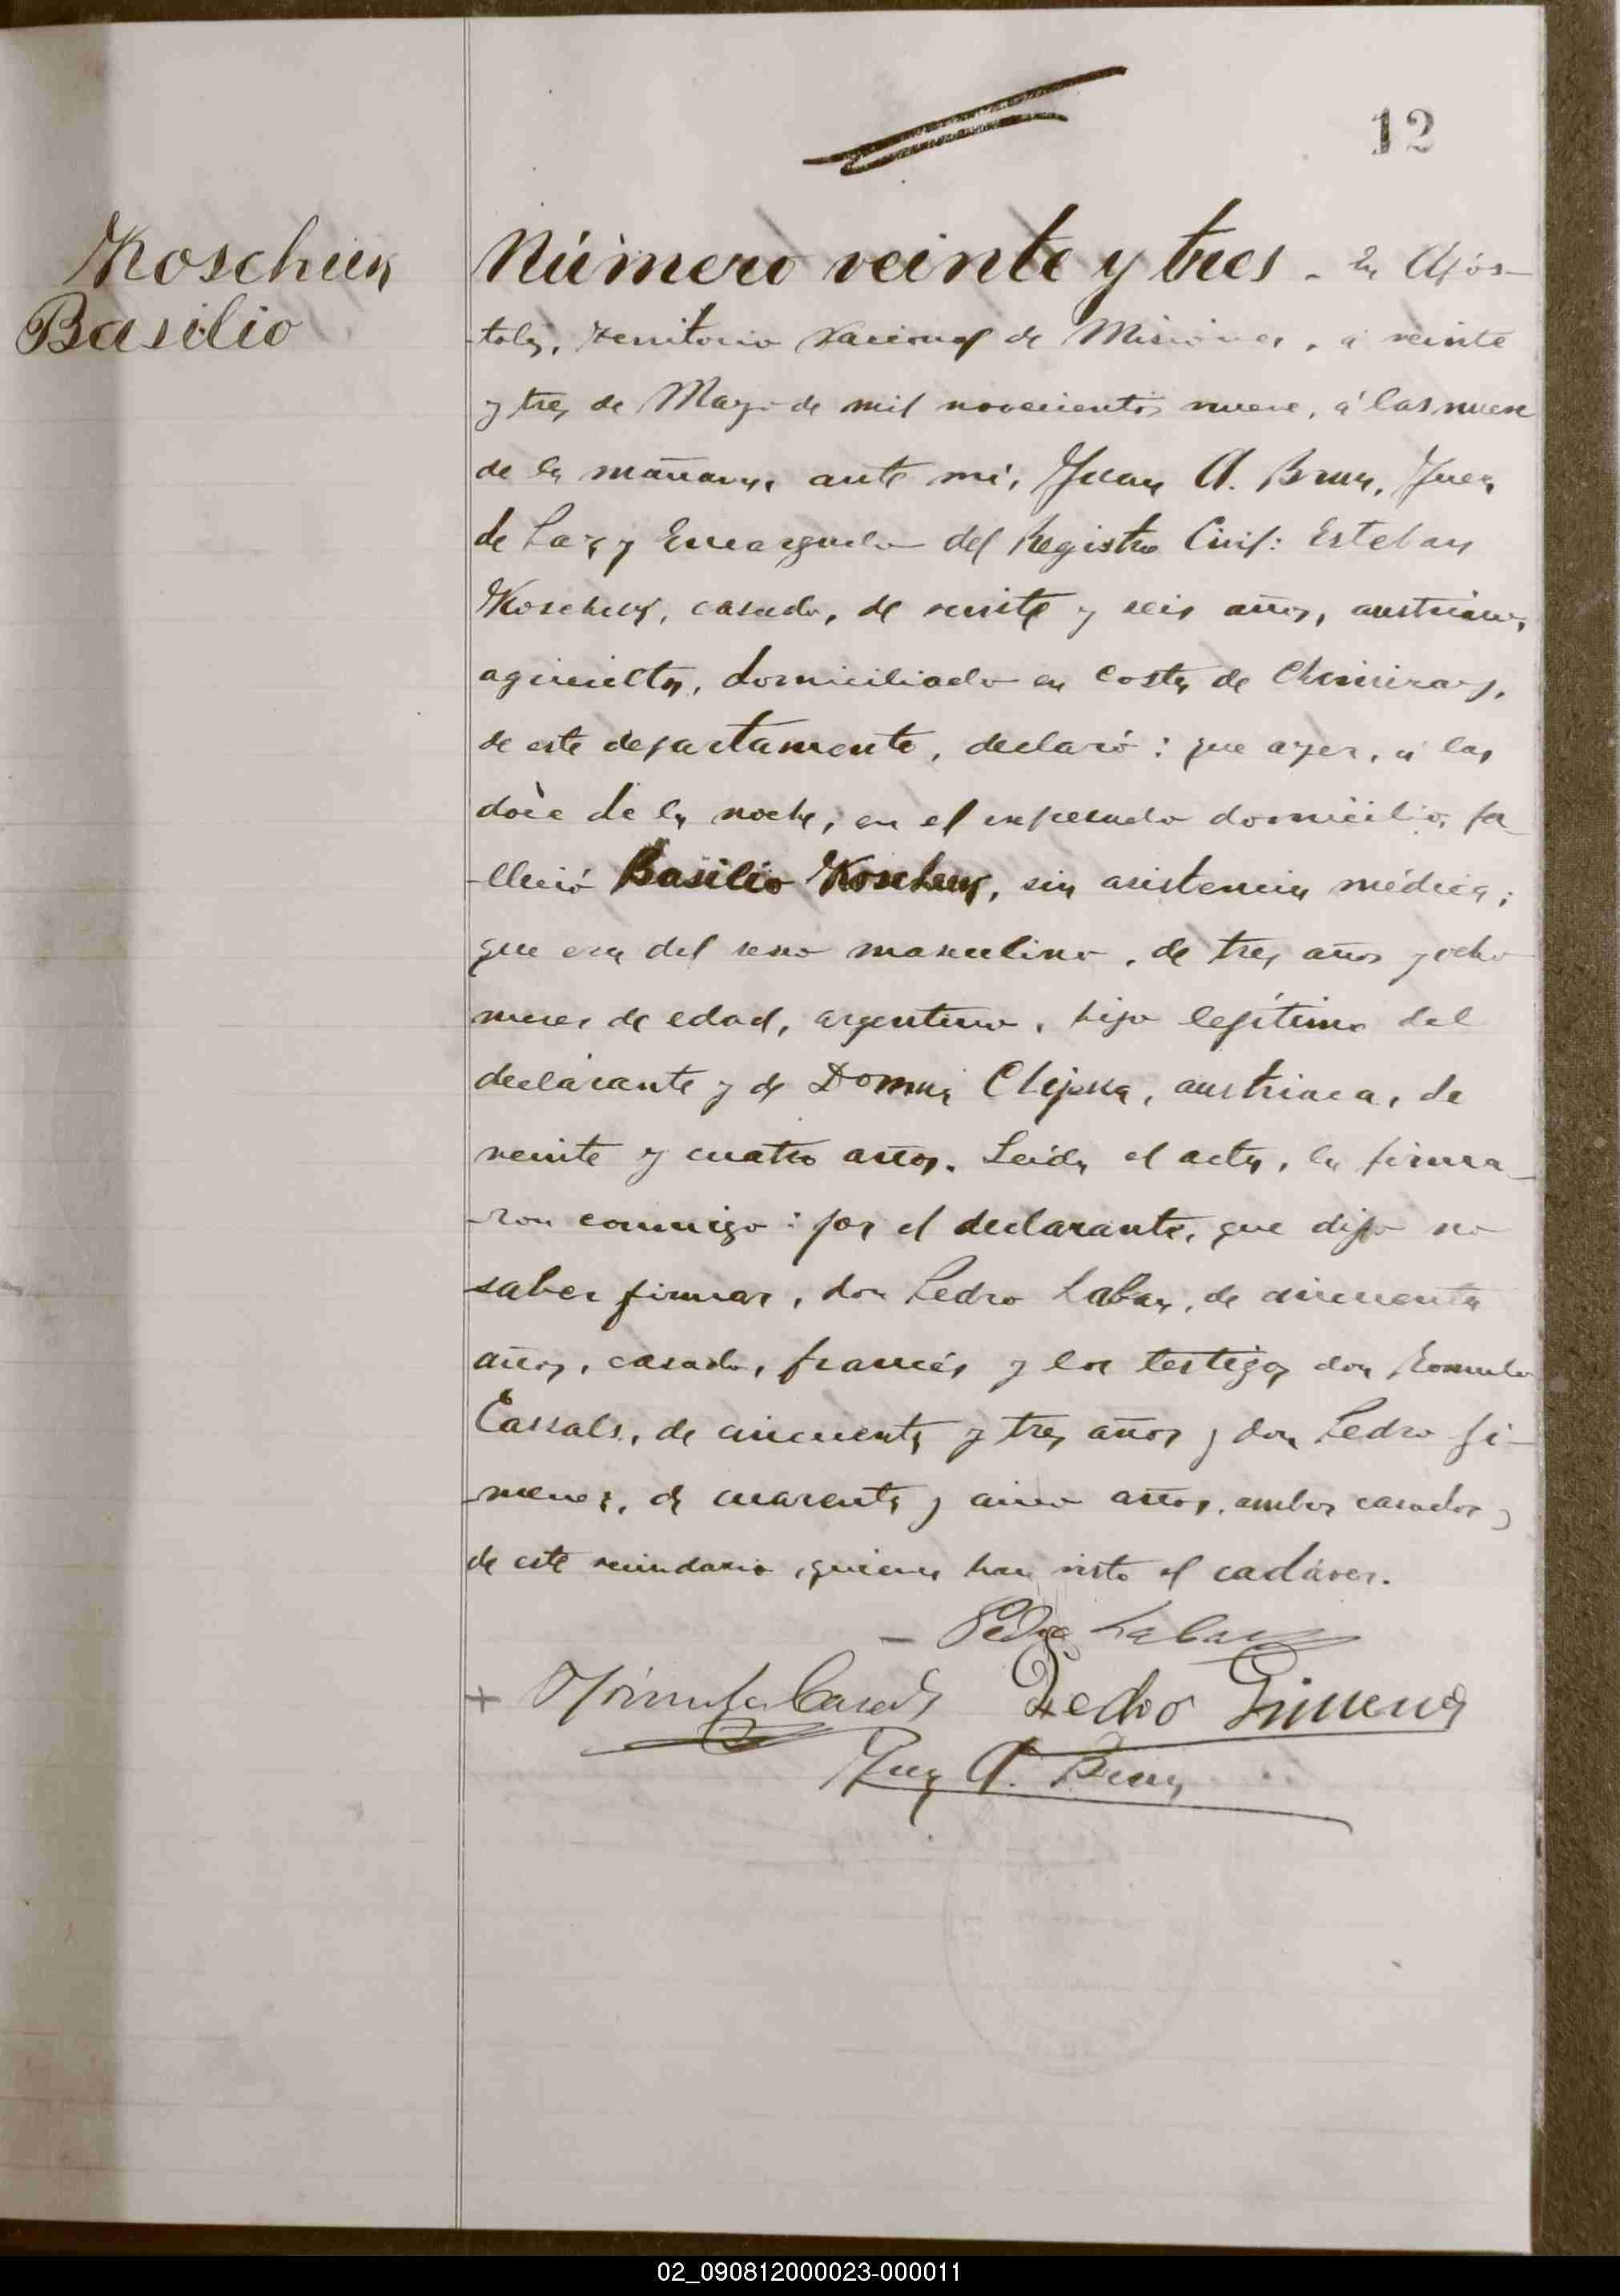 12
Koschuk
Basilio
Número veinte y tres. En Após-
toles, territorio Nacional de Misiones, á veinte
y tres de Mayo de mil novecientos nueve, á las nueve
de la mañana, ante mí, Juan A. Brun, Juez
de Paz y Encargado del Registro Civil: Esteban
Koschuk, casado, de veinte y seis años, austriaco,
agricultor, domiciliado en Costa de Chimiray,
de este departamento, declaró: que ayer, á las
doce de la noche, en el expresado domicilio, fa-
-lleció Basilio Koschuk, sin asistencia médica;
que era del sexo masculino, de tres años y ocho
meses de edad, argentino, hijo legítimo del
declarante y de Domna, austriaca, de
veinte y cuatro años. Leída el acta, la firma-
-ron conmigo: por el declarante, que dijo no
saber firmar, don Pedro Laban, de cincuenta
años, casado, francés y los testigos don Romulo
Cassals, de cincuenta y tres años y don Pedro Gi-
-menez, de cuarenta y cinco años, ambos casados y
de este vecindario, quienes han visto el cadáver.
Pedro Laban
Rómulo Casals Pedro Gimenez
Juan A. Brun
02_090812000023-000011